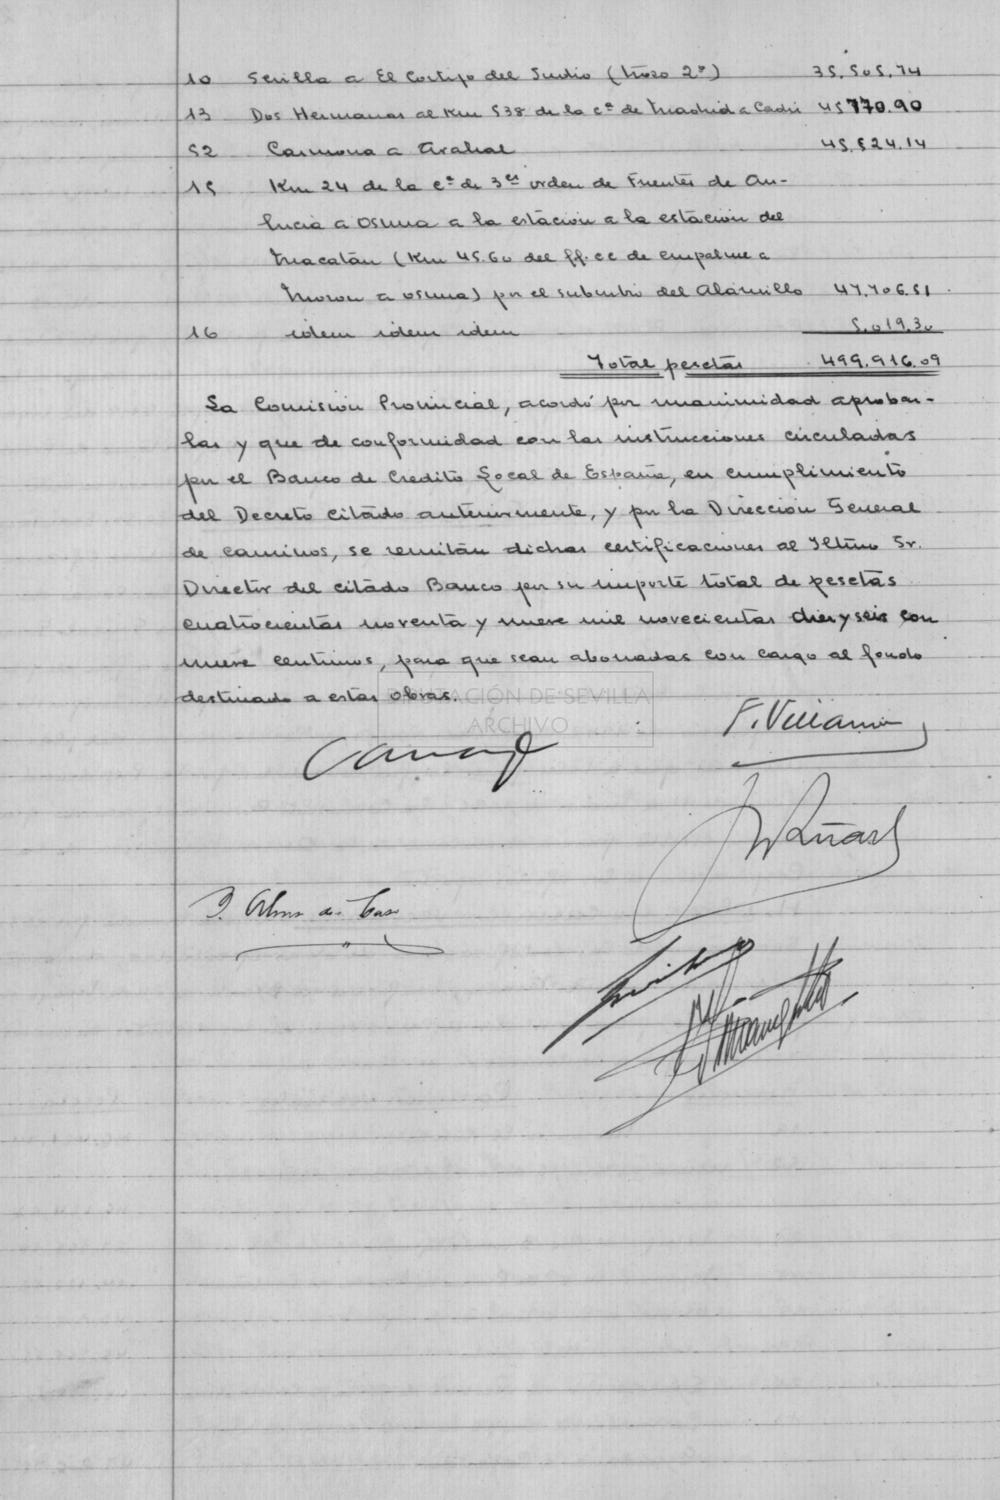 10 Sevilla a El Cortijo del Judio (trozo 2º) 35.505.74
13 Dos Hermanas al Km 538 de la cª de Madrid a Cadiz 45770.90
52 Carmona a Arahal 45.524.14
15 Km 24 de la cª de 3er orden de Fuentes de An-
lucia a Osuna a la estación a la estación del
(Km 45.60 del ff.cc de empalme a
Moron a Osuna) por el del Alamillo 47.706.51
16 idem idem idem 5.019.30
Total pesetas 499.916.09
La Comisión Provincial, acordó por unanimidad aprobar-
las y que de conformidad con las instrucciones circuladas
por el Banco de Credito Local de España, en cumplimiento
del Decreto citado anteriormente, y por la Dirección General
de caminos, se remitan dichas certificaciones al Iltmo Sr.
Director del citado Banco por su importe total de pesetas
cuatrocientas noventa y nueve mil novecientas diez y seis con
nueve centimos, para que sean abonadas con cargo al fondo
destinado a estas obras.
DIPUTACIÓN DE SEVILLA
ARCHIVO